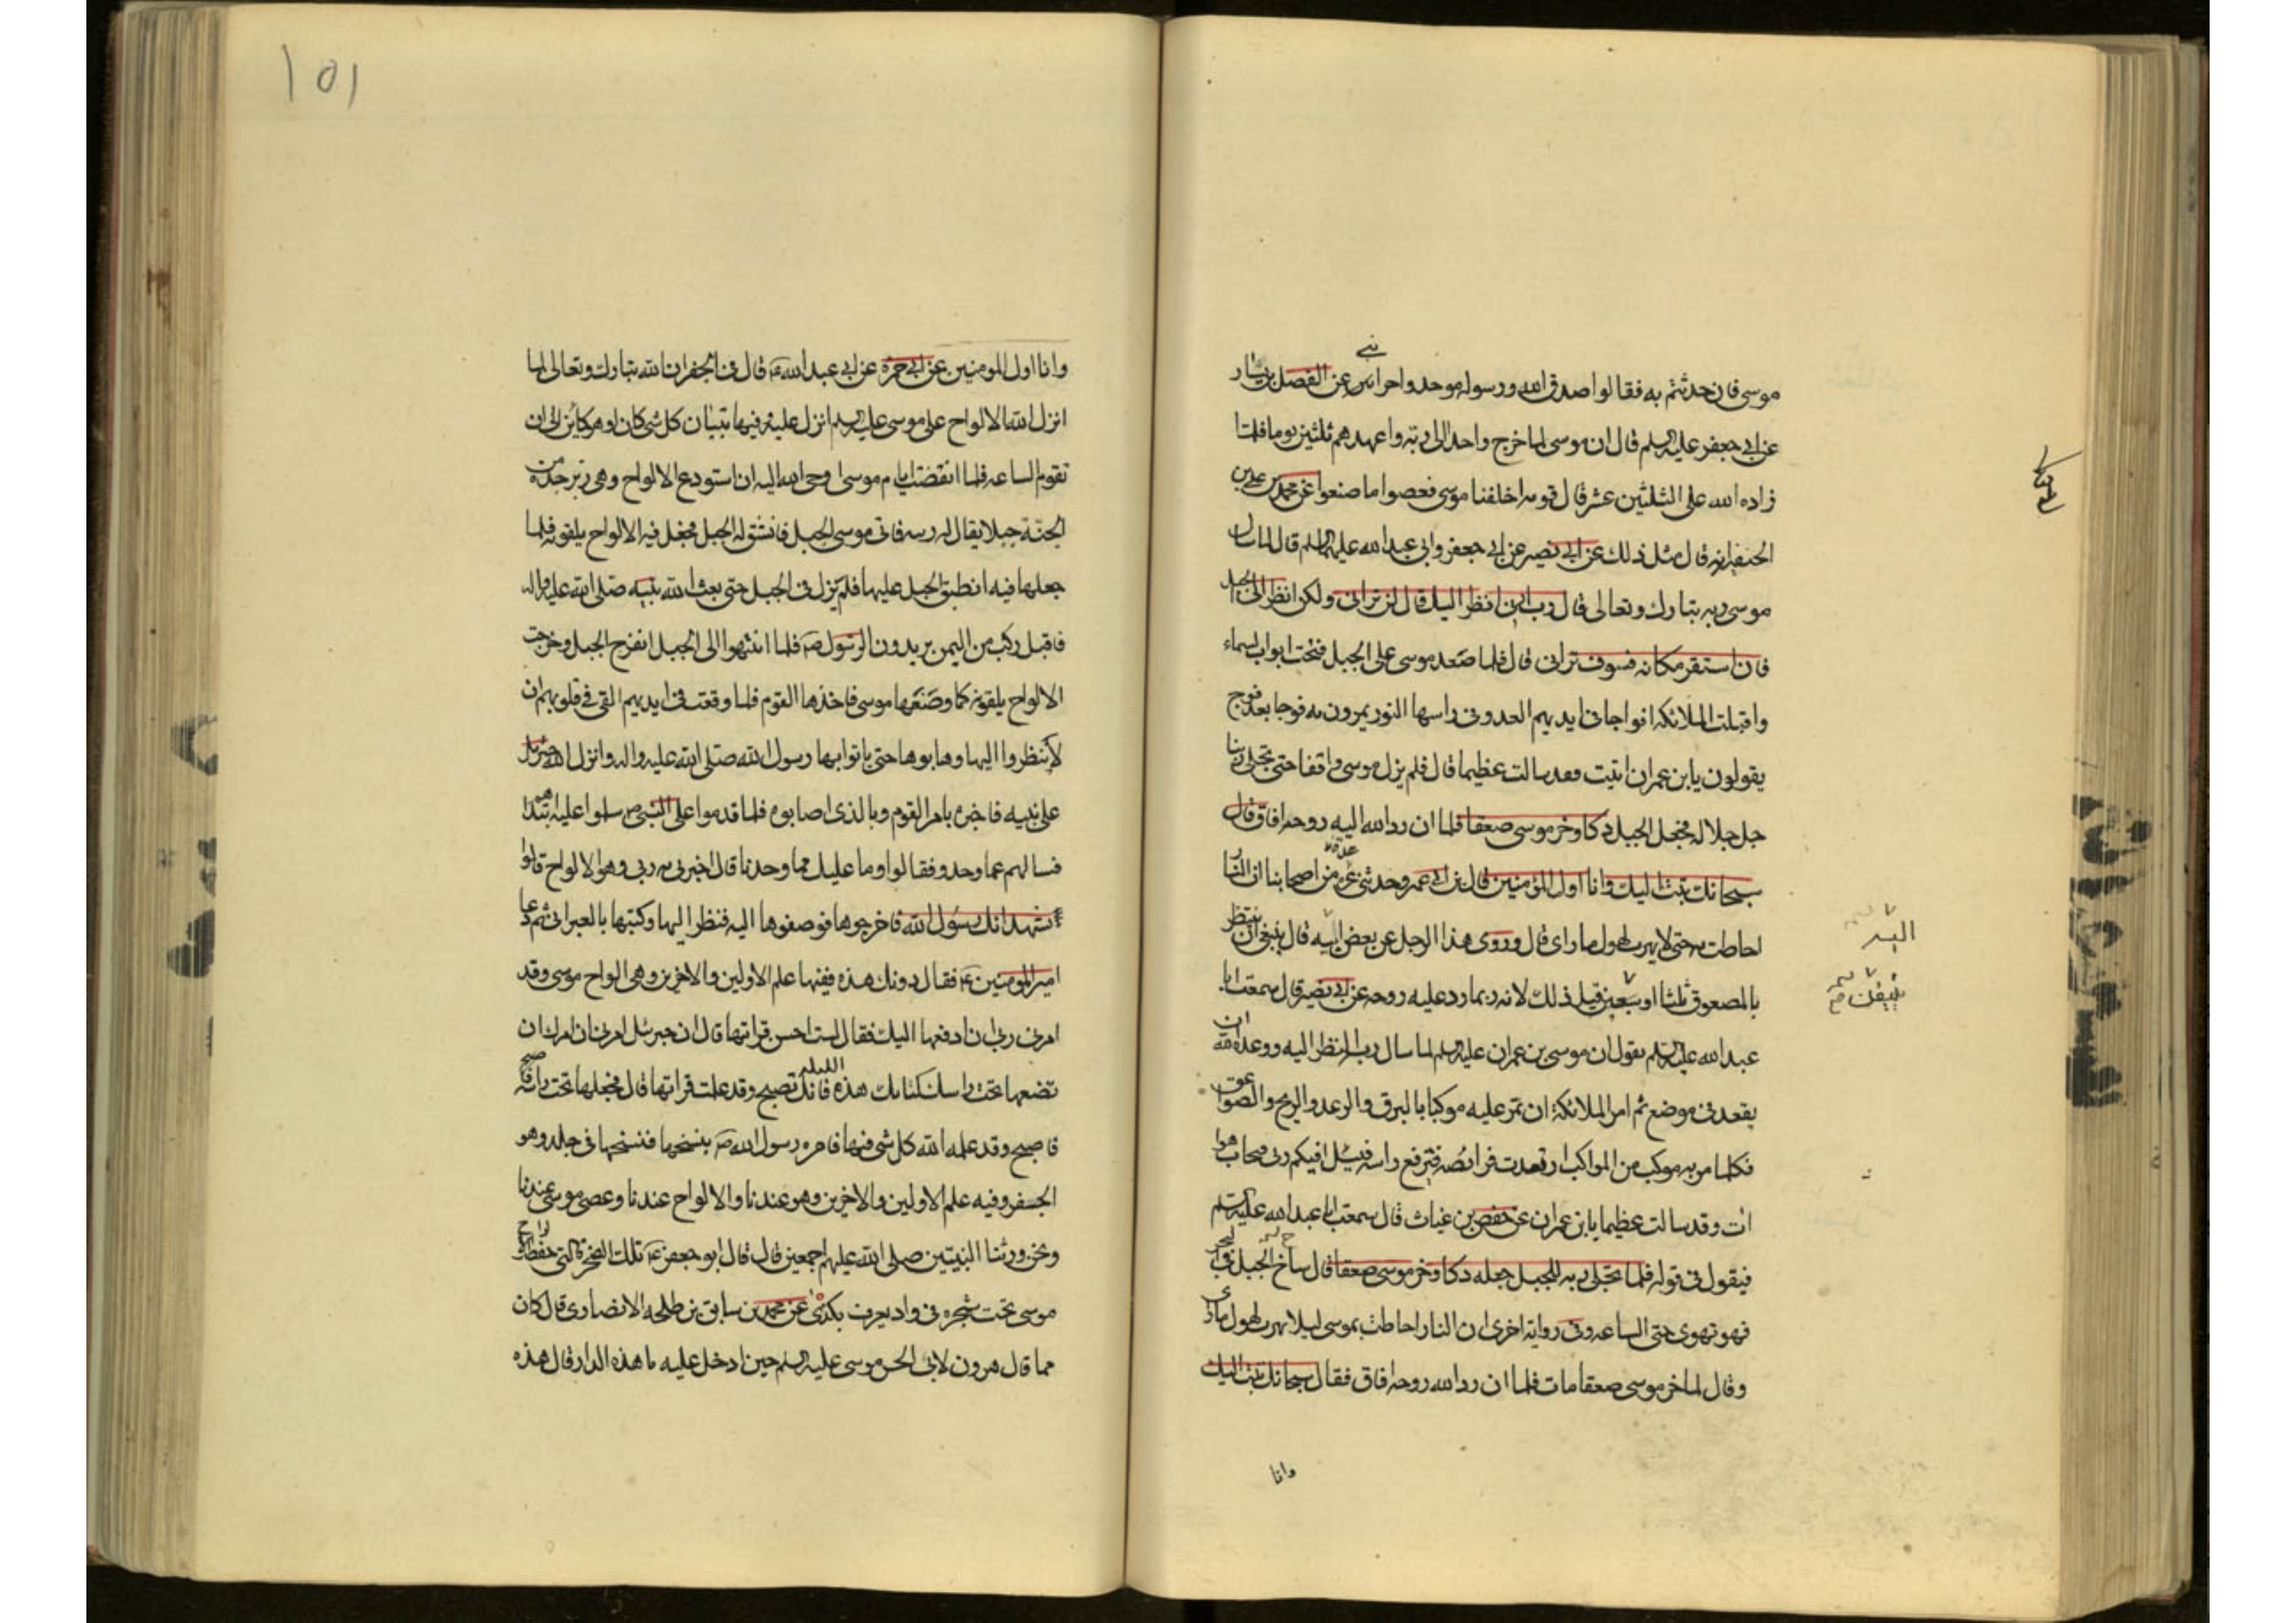 موسى فان حدثتم به فقالوا صدق الله ورسوله موحدوا حراس عن الفضل بن يسار
عن ابي جعفر عليه السلم قال ان موسى لما خرج واحدا الى ربه واعهدهم ثلثين يوما فلما
زاده الله على الثلثين عشر قال قومه اخلفنا موسى فصعوا ما صنعوا عن محمد بن علي بن
الحنفيه انه قال مثل ذلك عن ابي بصير عن ابي جعفر وابي عبد الله عليهما السلم قال لما سال
موسى ربه تبارك وتعالى قال رب ارني انظر اليك قال لن تراني ولكن انظر الى الجبل
فان استقر مكانه فسوف تراني قال فلما صعد موسى على الجبل فتحت ابواب السماء
واقبلت الملائكه افواجا في ايديهم العمد وفي راسها النور يمرون به فوجا بعد فوج
يقولون يا بن عمران اثبت فقد سالت عظيما قال فلم يزل موسى واقفا حتى تجلى ربنا
جل جلاله فجعل الجبل دكا وخر موسى صعقا فلما ان رد الله اليه روحه افاق قال
سبحانك تبت اليك وانا اول المؤمنين قال بن ابي عمير وحدثني عدة من اصحابنا ان النار
احاطت به حتى لا يهرب لهول ما راى قال وروى هذا الرجل عن بعض اليه قال ينبغي ان ينتظر
بالمصعوق ثلثا او سبعين قبل ذلك لانه ربما رد عليه روحه عن ابي بصير قال سمعت ابا
عبد الله عليه السلم يقول ان موسى بن عمران عليه السلم لما سال ربه النظر اليه ووعده الله ان
يقعد في موضع ثم امر الملائكة ان تمر عليه موكبا بالبرق والرعد والريح والصواعق
فكلما مر به موكب من المواكب ارتعدت فرائصه فيرفع راسه فيسئل افيكم ربي فيجاب هو
ات وقد سالت عظيما يا بن عمران عن حفص بن غياث قال سمعت ابا عبد الله عليه السلم
فيقول في قوله فلما تجلى ربه للجبل جعله دكا وخر موسى صعقا قال ساخ الجبل في البحر
فهو تهوى حتى الساعه وفي رواية اخرى ان النار احاطت بموسى ليلا يهرب لهول ما راى
وقال لما خر موسى صعقا مات فلما ان رد الله روحه افاق فقال سبحانك تبت اليك
وانا
وانا اول المومنين عن ابي حمزه عن ابي عبد الله قال في الجفر ان الله تبارك وتعالى لما
انزل الله الالواح على موسى عليه السلم انزل عليه وفيها تبيان كل شي كان او هو كاين الى ان
تقوم الساعه فلما انقضت ايام موسى اوحى الله اليه ان استودع الالواح وهي زبرجدة من
الجنة جبلا يقال له زينه فاتى موسى الجبل فانشق له الجبل فجعل فيه الالواح ملفوفه فلما
جعلها فيه انطبق الجبل عليها فلم يزل في الجبل حتى بعث الله نبيه صلى الله عليه واله
فاقبل ركب من اليمن يريدون الرسول ص فلما انتهوا الى الجبل انفرج الجبل وخرجت
الالواح ملفوفه كما وضعها موسى فاخذها القوم فلما وقعت في ايديهم القي في قلوبهم ان
لا ينظروا اليها وهابوها حتى ياتوا بها رسول الله صلى الله عليه واله وانزل الله جبرئيل
على نبيه فاخبره بامر القوم وبالذي اصابوه فلما قدموا على النبي ص سلموا عليه ابتداهم
فسالهم عما وجدو فقالوا وما علمك بما وجدنا قال اخبرني به ربي وهو الالواح قالوا
نشهد انك رسول الله فاخرجوها فوضعوها اليه فنظر اليها وكتبها بالعبراني ثم دعا
امير المومنين فقال دونك هذه ففيها علم الاولين والاخرين وهي الواح موسى وقد
امرني ربي ان ادفعها اليك فقال لست احسن قراتها قال ان جبرئل امرني ان امرك ان
تضعها تحت راسك كتابك هذه الليله فانك تصبح وقد علمت قراتها قال فجعلها تحت راسه
فاصبح وقد علمه الله كل شي فيها فامره رسول الله ص بنسخها فنسخها في جلد وهو
الجفر وفيه علم الاولين والاخرين وهو عندنا والالواح عندنا وعصى موسى عندنا
ونحن ورثنا النبيين صلى الله عليهم اجمعين قال قال ابو جعفر تلك الصخرة التي حفظت الواح
موسى تحت شجره في واد يعرف بكذى عن محمد بن سابق بن طلحه الانصاري قال كان
مما قال هرون لابي الحسن موسى عليه السلم حين ادخل عليه ما هذه الدار قال هذه